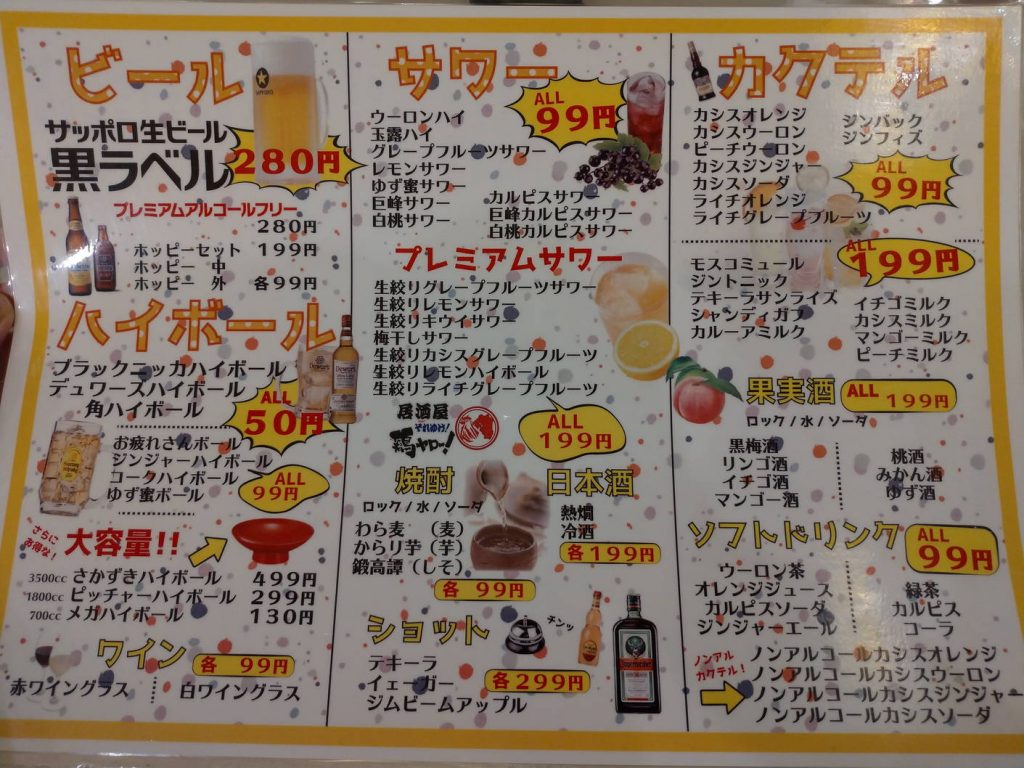 ビール
サッポロ生ビール
黒ラベル
280円
プレミアムアルコールフリー
280円
ホッピーセット 199円
ホッピー 中
ホッピー 外 各99円
ハイボール
ブラックニッカハイボール
デュワーズハイボール
角ハイボール
ALL
50円
お疲れさんボール
ジンジャーハイボール
コークハイボール
ゆず蜜ボール
ALL
99円
さらに
お得な!
大容量!!
3500cc さかずきハイボール 499円
1800cc ピッチャーハイボール 299円
700cc メガハイボール 130円
ワイン
各 99円
赤ワイングラス
白ワイングラス
サワー
ALL
99円
ウーロンハイ
玉露ハイ
グレープフルーツサワー
レモンサワー
ゆず蜜サワー
巨峰サワー
白桃サワー
カルピスサワー
巨峰カルピスサワー
白桃カルピスサワー
プレミアムサワー
生絞りグレープフルーツサワー
生絞りレモンサワー
生絞りキウイサワー
梅干しサワー
生絞りカシスグレープフルーツ
生絞りレモンハイボール
生絞りライチグレープフルーツ
ALL
199円
居酒屋
それゆけ!
鶏ヤロー!
焼酎
ロック/水/ソーダ
わら麦(麦)
からり芋(芋)
鍛高譚(しそ)
各 99円
日本酒
熱燗
冷酒
各199円
ショット
チンッ
テキーラ
イェーガー
ジムビームアップル
各299円
カクテル
カシスオレンジ
カシスウーロン
ピーチウーロン
カシスジンジャ
カシスソーダ
ライチオレンジ
ライチグレープフルーツ
ジンバック
ジンフィズ
ALL
99円
ALL
199円
モスコミュール
ジントニック
テキーラサンライズ
シャンディガフ
カルーアミルク
イチゴミルク
カシスミルク
マンゴーミルク
ピーチミルク
果実酒
ALL 199円
ロック/水/ソーダ
黒梅酒
リンゴ酒
イチゴ酒
マンゴー酒
桃酒
みかん酒
ゆず酒
ソフトドリンク
ALL
99円
ウーロン茶
オレンジジュース
カルピスソーダ
ジンジャーエール
緑茶
カルピス
コーラ
ノンアル
カクテル!
ノンアルコールカシスオレンジ
ノンアルコールカシスウーロン
ノンアルコールカシスジンジャー
ノンアルコールカシスソーダ